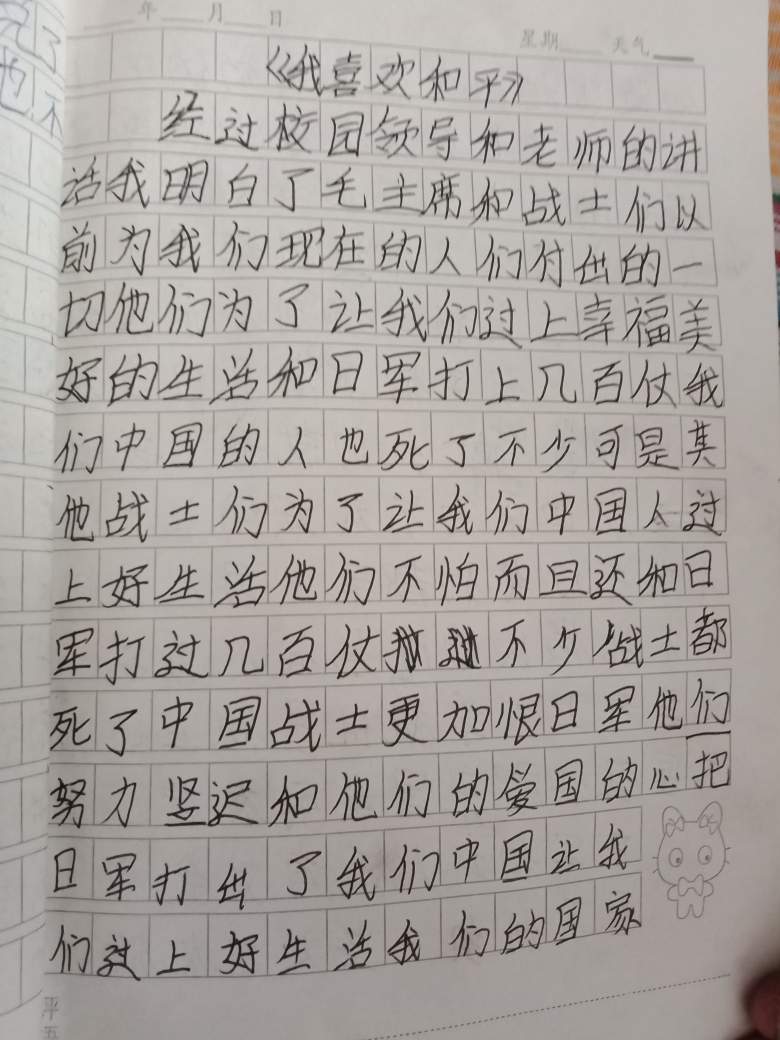 年 月 日 星期 天气
《我喜欢和平》
经过校园领导和老师的讲
话我明白了毛主席和战士们以
前为我们现在的人们付出的一
切他们为了让我们过上幸福美
好的生活和日军打上几百仗我
们中国的人也死了不少可是其
他战士们为了让我们中国人过
上好生活他们不怕而且还和日
军打过几百仗不少战士都
死了中国战士更加恨日军他们
努力坚迟和他们的爱国的心把
日军打出了我们中国让我
们过上好生活我们的国家